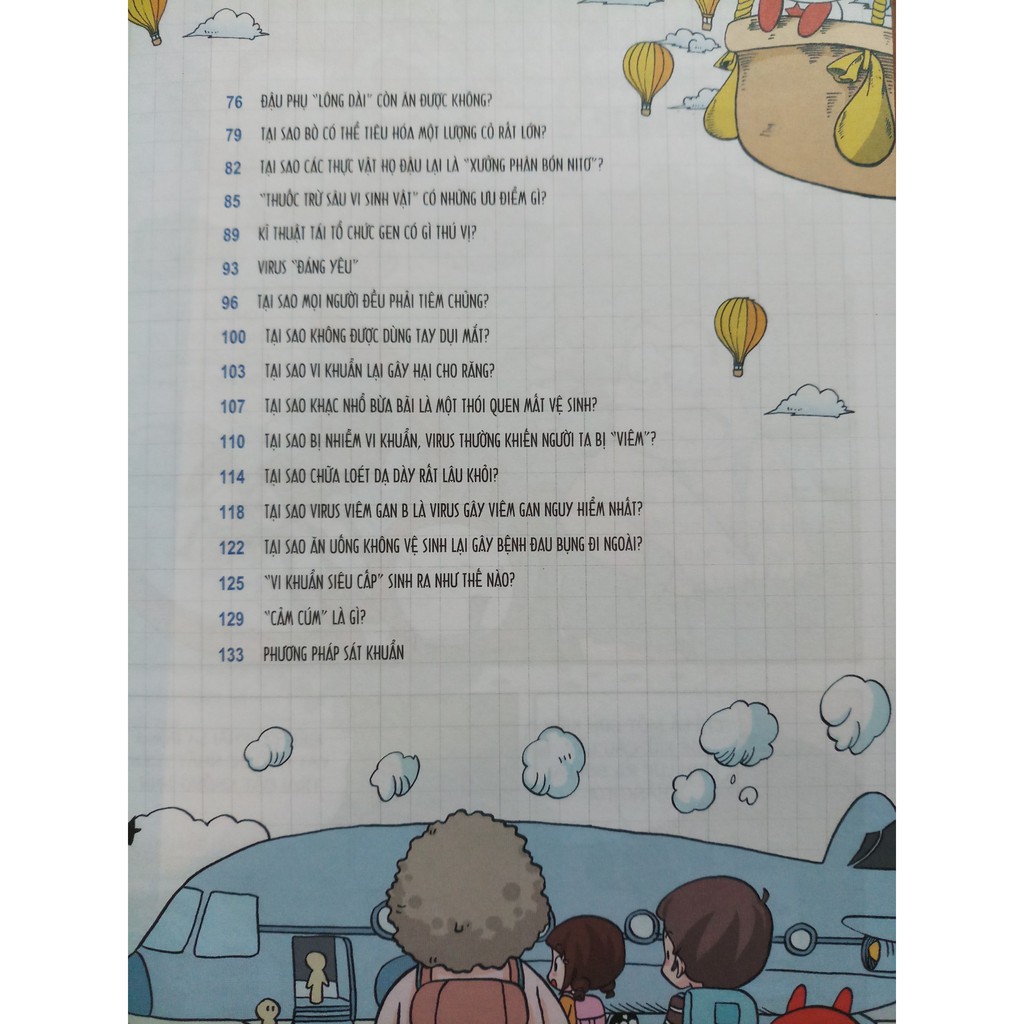 76 ĐẬU PHỤ "LÔNG DÀI" CÒN ĂN ĐƯỢC KHÔNG?
79 TẠI SAO BÒ CÓ THỂ TIÊU HÓA MỘT LƯỢNG CỎ RẤT LỚN?
82 TẠI SAO CÁC THỰC VẬT HỌ ĐẬU LẠI LÀ "XƯỞNG PHÂN BÓN NITƠ"?
85 "THUỐC TRỪ SÂU VI SINH VẬT" CÓ NHỮNG ƯU ĐIỂM GÌ?
89 KĨ THUẬT TÁI TỔ CHỨC GEN CÓ GÌ THÚ VỊ?
93 VIRUS "ĐÁNG YÊU"
96 TẠI SAO MỌI NGƯỜI ĐỀU PHẢI TIÊM CHỦNG?
100 TẠI SAO KHÔNG ĐƯỢC DÙNG TAY DỤI MẮT?
103 TẠI SAO VI KHUẨN LẠI GÂY HẠI CHO RĂNG?
107 TẠI SAO KHẠC NHỔ BỪA BÃI LÀ MỘT THÓI QUEN MẤT VỆ SINH?
110 TẠI SAO BỊ NHIỄM VI KHUẨN, VIRUS THƯỜNG KHIẾN NGƯỜI TA BỊ "VIÊM"?
114 TẠI SAO CHỮA LOÉT DẠ DÀY RẤT LÂU KHỎI?
118 TẠI SAO VIRUS VIÊM GAN B LÀ VIRUS GÂY VIÊM GAN NGUY HIỂM NHẤT?
122 TẠI SAO ĂN UỐNG KHÔNG VỆ SINH LẠI GÂY BỆNH ĐAU BỤNG ĐI NGOÀI?
125 "VI KHUẨN SIÊU CẤP" SINH RA NHƯ THẾ NÀO?
129 "CẢM CÚM" LÀ GÌ?
133 PHƯƠNG PHÁP SÁT KHUẨN